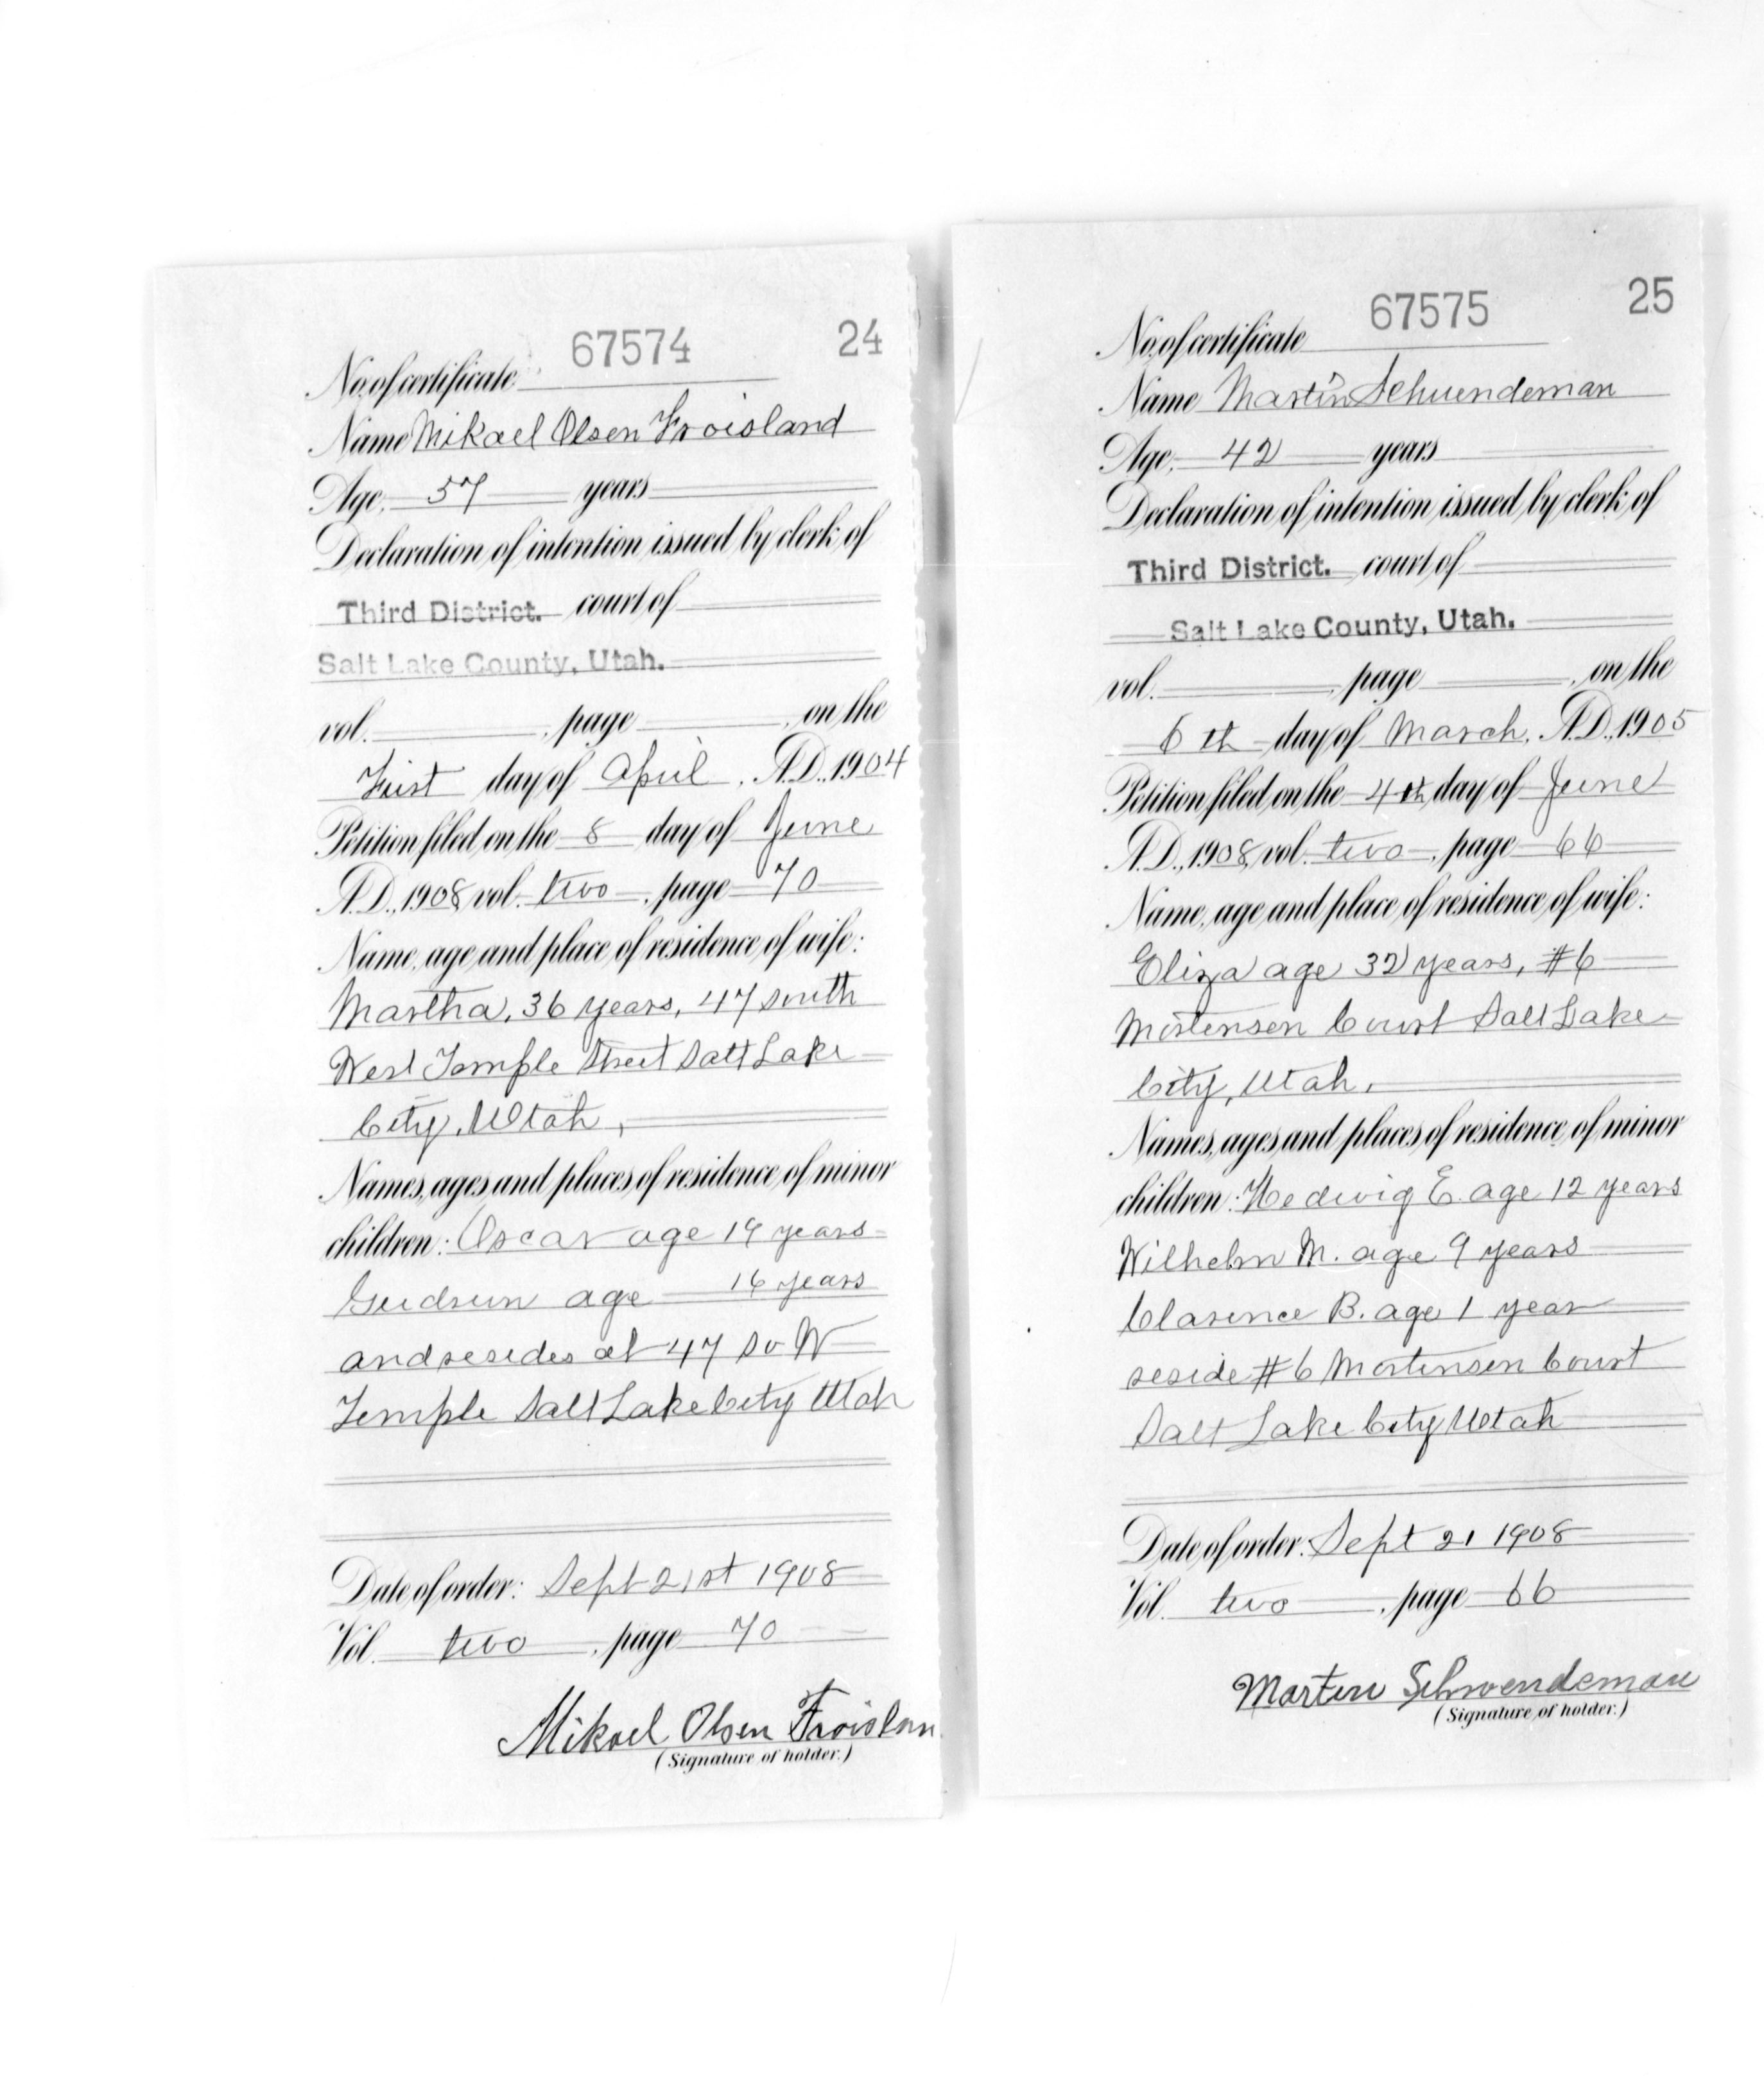 67574 24
No. of certificate
Name Mikael Olsen Froisland
Age, 57 years
Declaration of intention issued by clerk of
Third District. court of
Salt Lake County, Utah.
vol. , page , on the
First day of April, A.D., 1904
Petition filed on the 8 day of June
A.D., 1908, vol. two, page 70
Name, age and place of residence of wife:
Martha, 36 years, 47 south
West Temple Street Salt Lake
City, Utah,
Names, ages and places of residence of minor
children: Oscar age 19 years
Gudrun age 16 years
and resides at 47 So W
Temple Salt Lake City Utah
Date of order: Sept 21st 1908
Vol. two, page 70
Mikael Olsen Froislan
(Signature of holder.)
67575 25
No. of certificate
Name Martin Schwendeman
Age, 42 years
Declaration of intention issued by clerk of
Third District. court of
Salt Lake County, Utah.
vol. , page , on the
6th day of March, A.D., 1905
Petition filed on the 4th day of June
A.D., 1908, vol. two, page 66
Name, age and place of residence of wife:
Eliza age 32 years, #6
Mortensen Court Salt Lake
City, Utah.
Names, ages and places of residence of minor
children: Hedwig E. age 12 years
Wilhelm M. age 9 years
Clarence B. age 1 year
reside #6 Mortensen Court
Salt Lake City Utah
Date of order: Sept 21 1908
Vol. two, page 66
Martin Schwendeman
(Signature of holder.)